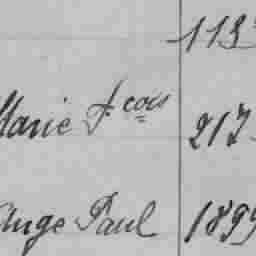 113
Marie Fcois 217
Ange Paul 1899